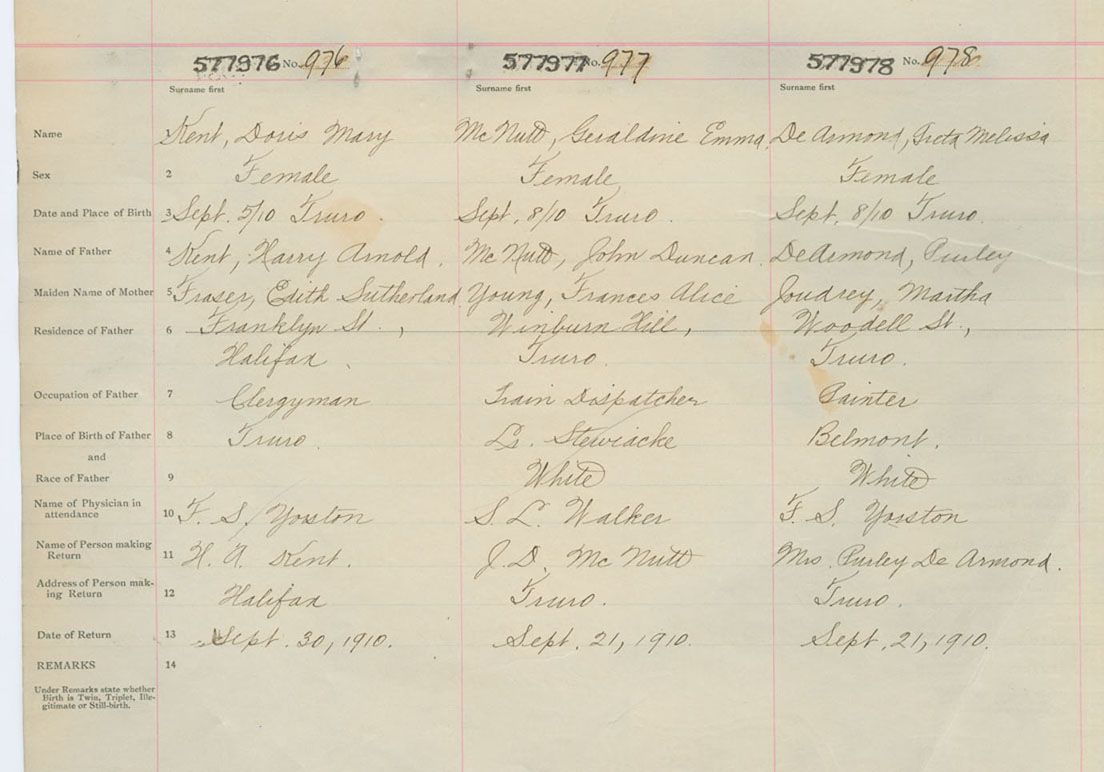 577976 No. 976 577977 No. 977 577978 No. 978
Surname first Surname first Surname first
Name 1 Kent, Doris Mary McNutt, Geraldine Emma. De Armond, Greta Melissa
Sex 2 Female Female Female
Date and Place of Birth 3 Sept. 5/10 Truro. Sept. 8/10 Truro. Sept. 8/10 Truro.
Name of Father 4 Kent, Harry Arnold. McNutt, John Duncan. DeArmond, Purley
Maiden Name of Mother 5 Fraser, Edith Sutherland Young, Frances Alice Joudrey, Martha
Residence of Father 6 Franklyn St., Winburn Hill, Woodell St.,
Halifax. Truro. Truro.
Occupation of Father 7 Clergyman Train Dispatcher Painter
Place of Birth of Father 8 Truro. Lr. Stewiacke Belmont.
and
Race of Father 9 White White
Name of Physician in
attendance 10 F. S. Yorston S. L. Walker F. S. Yorston
Name of Person making
Return 11 H. A. Kent. J. D. McNutt Mrs. Purley De Armond.
Address of Person mak-
ing Return 12 Halifax Truro. Truro.
Date of Return 13 Sept. 30, 1910. Sept. 21, 1910. Sept. 21, 1910.
REMARKS 14
Under Remarks state whether
Birth is Twin, Triplet, Ille-
gitimate or Still-birth.